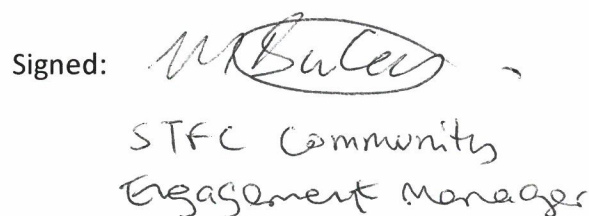 Signed:
STFC Community
Engagement Manager